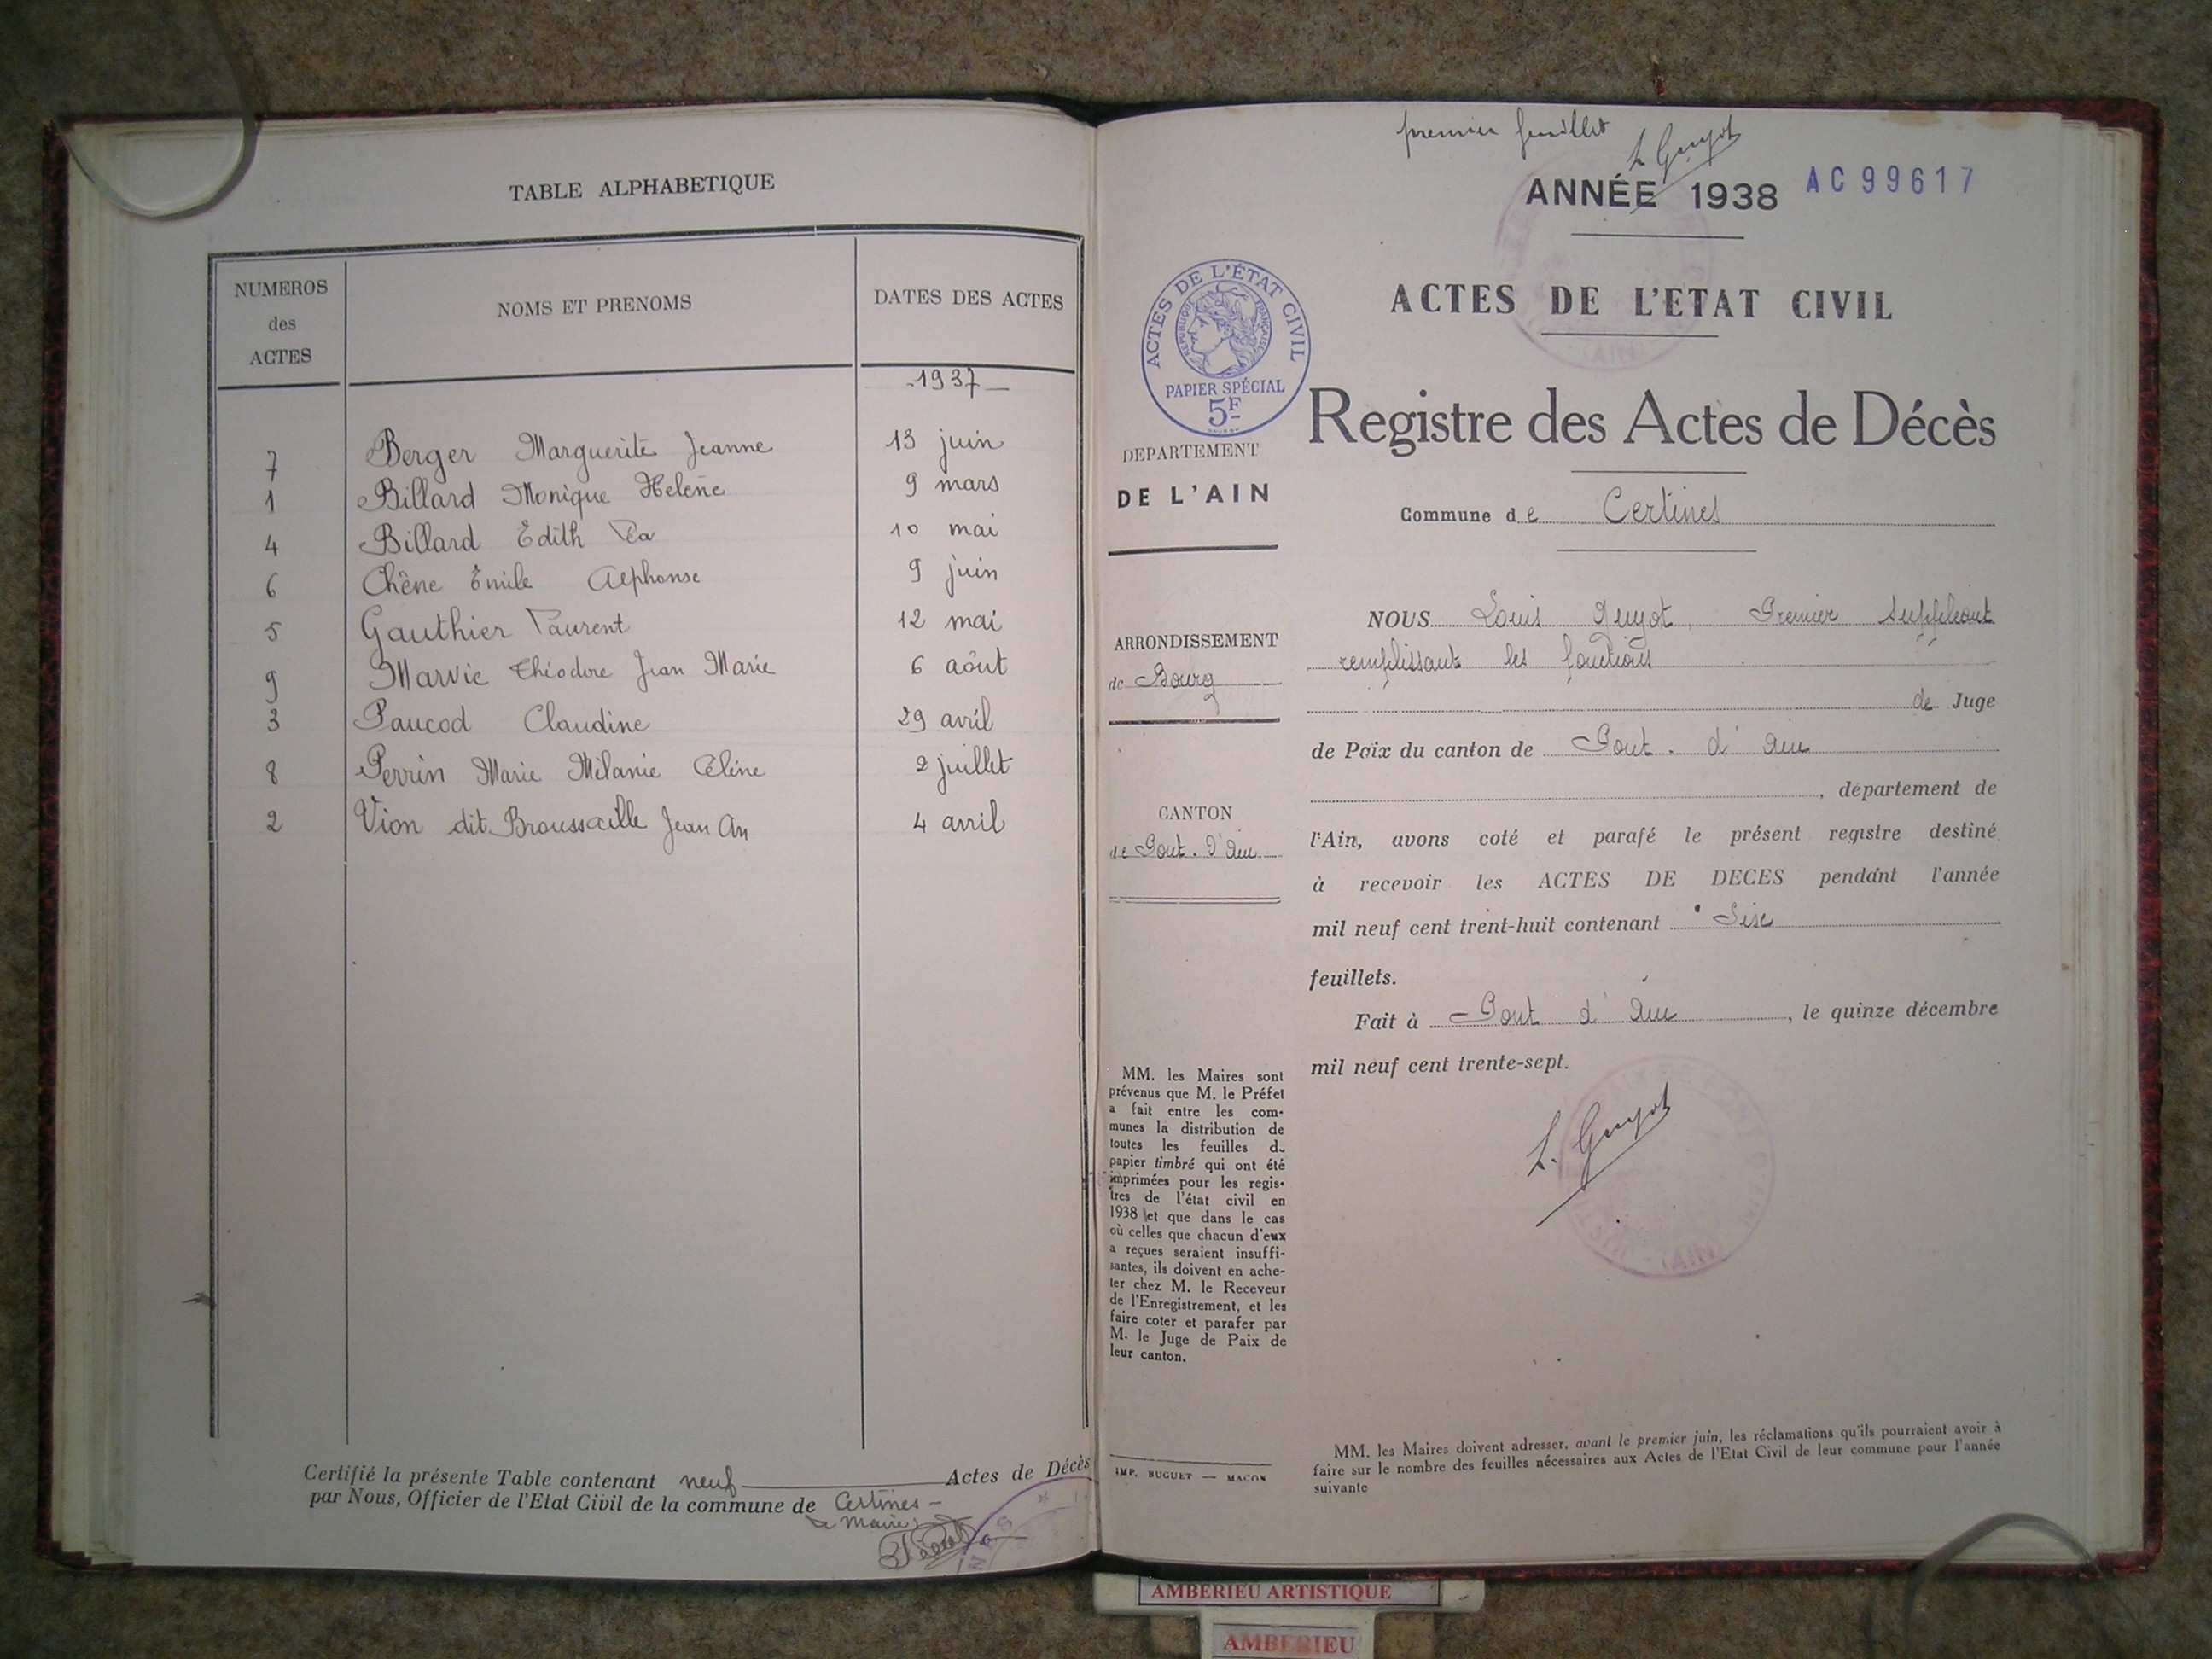 TABLE ALPHABETIQUE
NUMEROS
des
ACTES
NOMS ET PRENOMS
DATES DES ACTES
1937
7 Berger Marguerite Jeanne 13 juin
1 Billard Monique Helène 9 mars
4 Billard Edith 10 mai
6 Chêne Emile Alphonse 9 juin
5 Gauthier Laurent 12 mai
9 Marvie Théodore Jean Marie 6 août
3 Paucod Claudine 29 avril
8 Perrin Marie Mélanie Céline 2 juillet
2 Vion dit Broussaille Jean An 4 avril
Certifié la présente Table contenant neuf Actes de Décès
par Nous, Officier de l'Etat Civil de la commune de Certines
Le Maire
premier feuillet
L Guyot
ANNÉE 1938 AC99617
ACTES DE L'ÉTAT CIVIL
REPUBLIQUE FRANÇAISE
PAPIER SPÉCIAL
5F
ACTES DE L'ETAT CIVIL
Registre des Actes de Décès
Commune de Certines
DEPARTEMENT
DE L'AIN
ARRONDISSEMENT
de Bourg
CANTON
de Pont. d'Ain
NOUS Louis Guyot, Premier Suppléant
remplissant les fonctions
de Juge
de Paix du canton de Pont. d'Ain
, département de
l'Ain, avons coté et parafé le présent registre destiné
à recevoir les ACTES DE DECES pendant l'année
mil neuf cent trent-huit contenant Six
feuillets.
Fait à Pont d'Ain, le quinze décembre
mil neuf cent trente-sept.
L. Guyot
MM. les Maires sont
prévenus que M. le Préfet
a fait entre les com-
munes la distribution de
toutes les feuilles de
papier timbré qui ont été
imprimées pour les regis-
tres de l'état civil en
1938 et que dans le cas
où celles que chacun d'eux
a reçues seraient insuffi-
santes, ils doivent en ache-
ter chez M. le Receveur
de l'Enregistrement, et les
faire coter et parafer par
M. le Juge de Paix de
leur canton.
IMP. BUGUET — MACON
MM. les Maires doivent adresser, avant le premier juin, les réclamations qu'ils pourraient avoir à
faire sur le nombre des feuilles nécessaires aux Actes de l'Etat Civil de leur commune pour l'année
suivante
AMBERIEU ARTISTIQUE
AMBERIEU